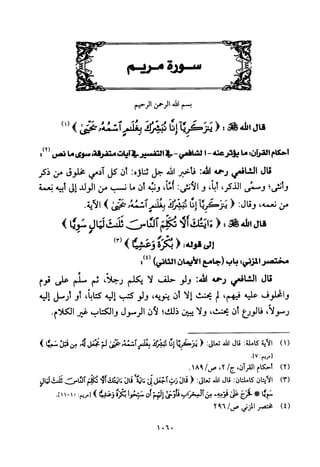 سورة مريم
بسم الله الرحمن الرحيم
قال الله ﷻ: ﴿ يَٰزَكَرِيَّآ إِنَّا نُبَشِّرُكَ بِغُلَٰمٍ ٱسْمُهُۥ يَحْيَىٰ ﴾ (١)
أحكام القرآن: ما يؤثر عنه - الشافعي - في التفسير في آيات متفرقة، سوى ما نص (٢):
قال الشافعي رحمه الله: فأخبر الله جل ثناؤه: أن كل آدمي مخلوق من ذكر
وأنثى؛ وسمَّى الذكر، أباً، و الأنثى: أمَّاً، ونبَّه أن ما نسب من الولد إلى أبيه نعمة
من نعمه، وقال: ﴿ يَٰزَكَرِيَّآ إِنَّا نُبَشِّرُكَ بِغُلَٰمٍ ٱسْمُهُۥ يَحْيَىٰ ﴾ الآية.
قال الله ﷻ: ﴿ ءَايَتُكَ أَلَّا تُكَلِّمَ ٱلنَّاسَ ثَلَٰثَ لَيَالٍ سَوِيًّا ﴾
إلى قوله: ﴿ بُكْرَةً وَعَشِيًّا ﴾ (٣)
مختصر المزني: باب (جامع الأيمان الثاني) (٤):
قال الشافعي رحمه الله: ولو حلف لا يكلم رجلاً، ثم سلَّم على قوم
والمحلوف عليه فيهم، لم يحنث إلا أن ينويه، ولو كتب إليه كتاباً، أو أرسل إليه
رسولاً، فالورع أن يحنث، ولا يبين ذلك؛ لأن الرسول والكتاب غير الكلام.
(١) الآية كاملة: قال الله تعالى: ﴿ يَٰزَكَرِيَّآ إِنَّا نُبَشِّرُكَ بِغُلَٰمٍ ٱسْمُهُۥ يَحْيَىٰ لَمْ نَجْعَل لَّهُۥ مِن قَبْلُ سَمِيًّا ﴾
[مريم: ٧].
(٢) أحكام القرآن، ج/ ٢، ص/ ١٨٩.
(٣) الآيتان كاملتان: قال الله تعالى: ﴿ قَالَ رَبِّ ٱجْعَل لِّىٓ ءَايَةً قَالَ ءَايَتُكَ أَلَّا تُكَلِّمَ ٱلنَّاسَ ثَلَٰثَ لَيَالٍ
سَوِيًّا * فَخَرَجَ عَلَىٰ قَوْمِهِۦ مِنَ ٱلْمِحْرَابِ فَأَوْحَىٰٓ إِلَيْهِمْ أَن سَبِّحُوا۟ بُكْرَةً وَعَشِيًّا ﴾ [مريم: ١٠-١١].
(٤) مختصر المزني ص/ ٢٩٦
١٠٦٠